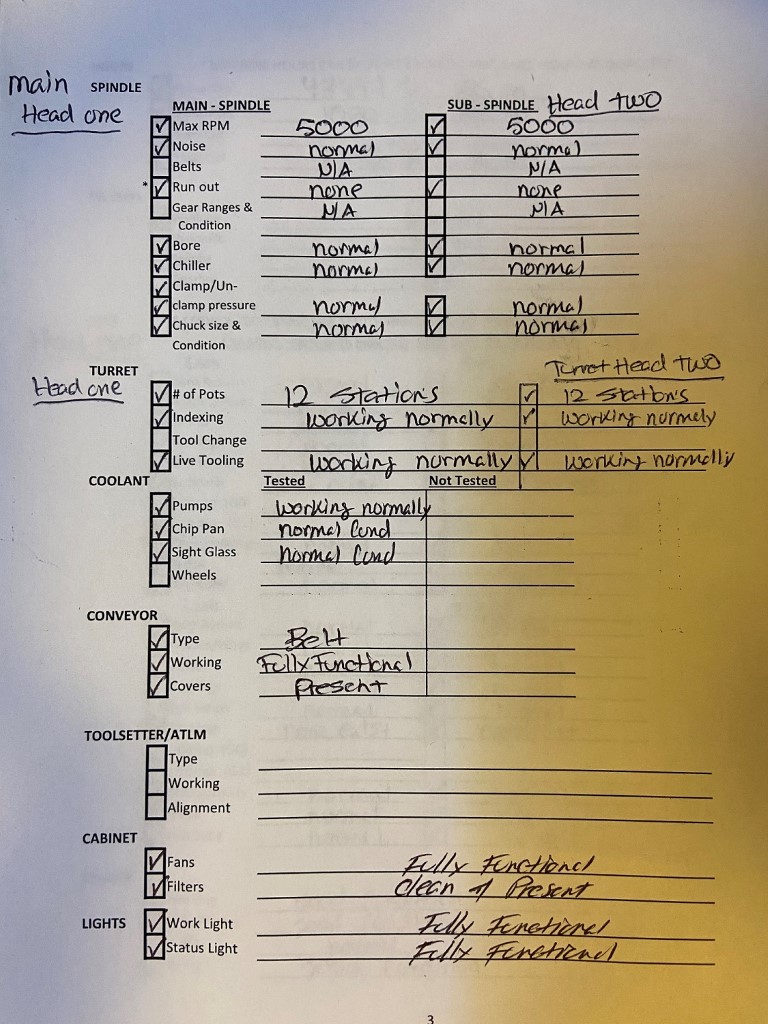 main SPINDLE
Head one
MAIN - SPINDLE SUB - SPINDLE Head two
Max RPM 5000 5000
Noise normal normal
Belts N/A N/A
* Run out none none
Gear Ranges & N/A N/A
Condition
Bore normal normal
Chiller normal normal
Clamp/Un-
clamp pressure normal normal
Chuck size & normal normal
Condition
TURRET Turret Head two
Head one
# of Pots 12 Stations 12 Stations
Indexing working normally working normely
Tool Change
Live Tooling working normally working normally
COOLANT Tested Not Tested
Pumps working normally
Chip Pan normal Cond
Sight Glass Normal Cond
Wheels
CONVEYOR
Type Belt
Working Fully Functional
Covers Present
TOOLSETTER/ATLM
Type
Working
Alignment
CABINET
Fans Fully Functional
Filters Clean & Present
LIGHTS Work Light Fully Functional
Status Light Fully Functional
3